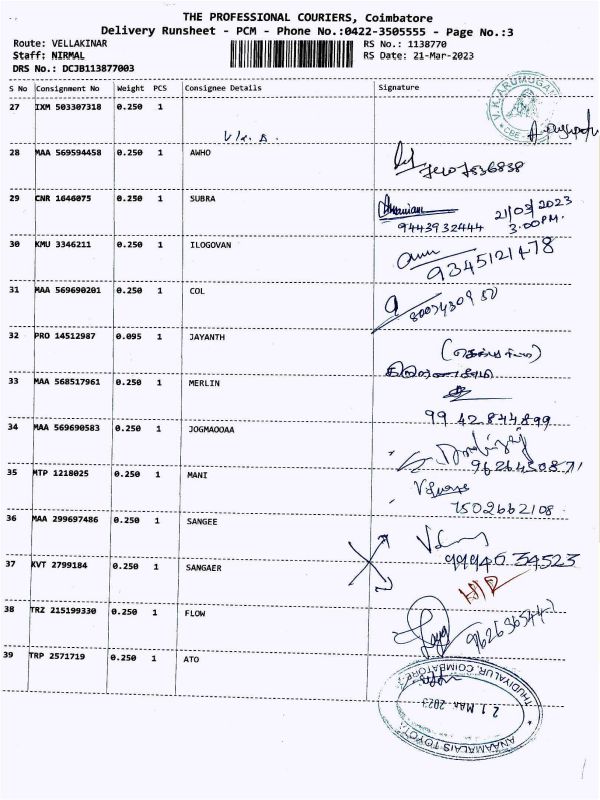 THE PROFESSIONAL COURIERS, Coimbatore
Delivery Runsheet - PCM - Phone No.:0422-3505555 - Page No.:3
Route: VELLAKINAR RS No.: 1138770
Staff: NIRMAL RS Date: 21-Mar-2023
DRS No.: DCJB113877003
S No Consignment No Weight PCS Consignee Details Signature
27 IXM 503307318 0.250 1
V.K.ARUMUGA
CBE
28 MAA 569594458 0.250 1 AWHO
29 CNR 1646075 0.250 1 SUBRA
21/03/2023
9443932444 3.00PM.
30 KMU 3346211 0.250 1 ILOGOVAN
9345121478
31 MAA 569690201 0.250 1 COL
32 PRO 14512987 0.095 1 JAYANTH
33 MAA 568517961 0.250 1 MERLIN
99 42 844899
34 MAA 569690583 0.250 1 JOGMAOOAA
35 MTP 1218025 0.250 1 MANI
7502662108
36 MAA 299697486 0.250 1 SANGEE
9994634523
37 KVT 2799184 0.250 1 SANGAER
38 TRZ 215199330 0.250 1 FLOW
39 TRP 2571719 0.250 1 ATO
THUDIYALUR, COIMBATORE
21 MAR 2023
ANAMALAIS TOYOT